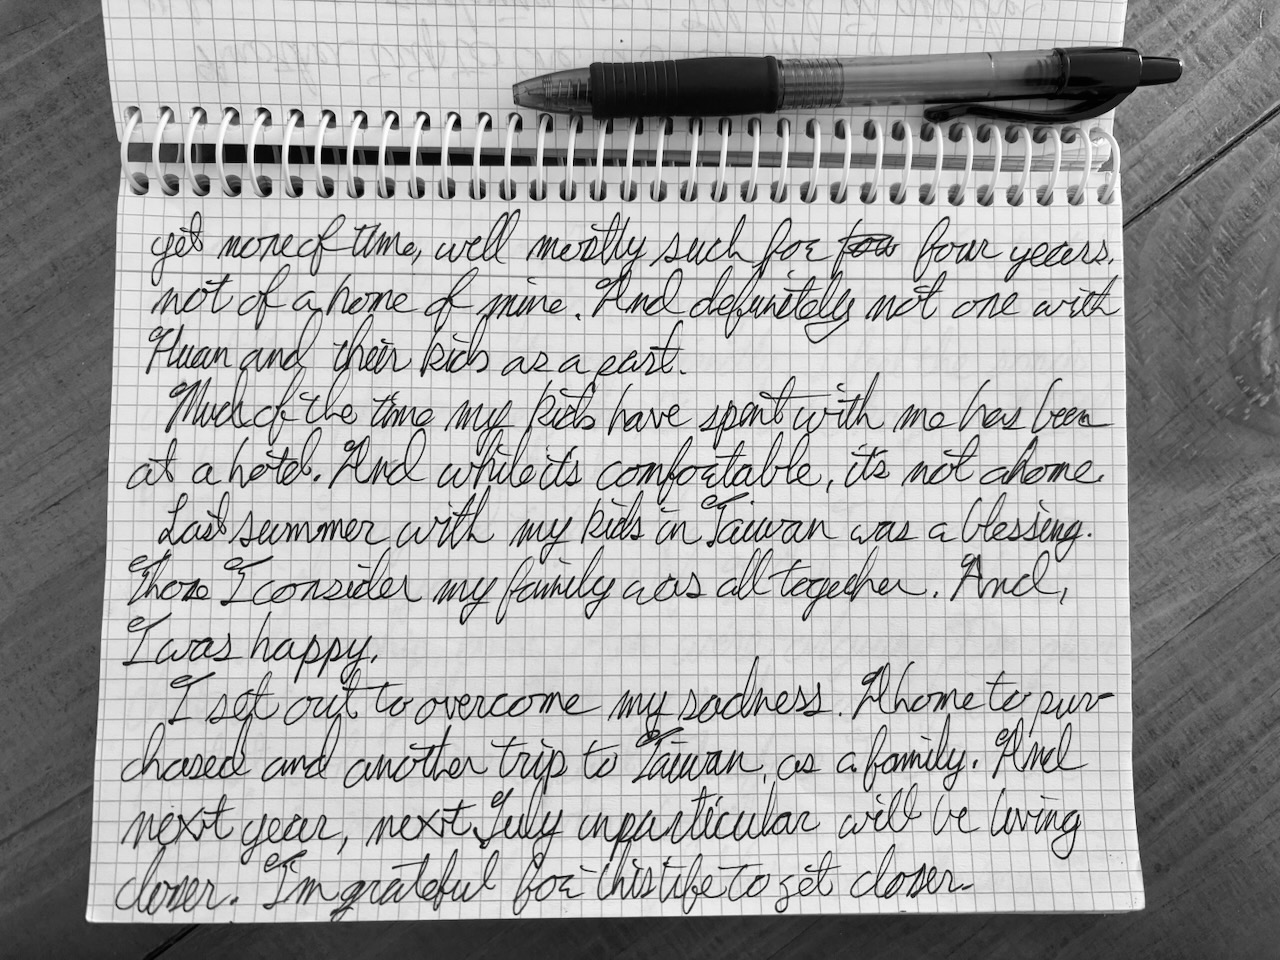 yet none of time, well mostly such for four years.
not of a home of mine. And definitely not one with
Huan and their kids as a part.
Much of the time my kids have spent with me has been
at a hotel. And while its comfortable, its not a home.
Last summer with my kids in Taiwan was a blessing.
There I consider my family was all together. And,
I was happy.
I set out to overcome my sadness. A home to pur-
chased and another trip to Taiwan, as a family. And
next year, next July in particular will be living
closer. I'm grateful for this life to get closer.